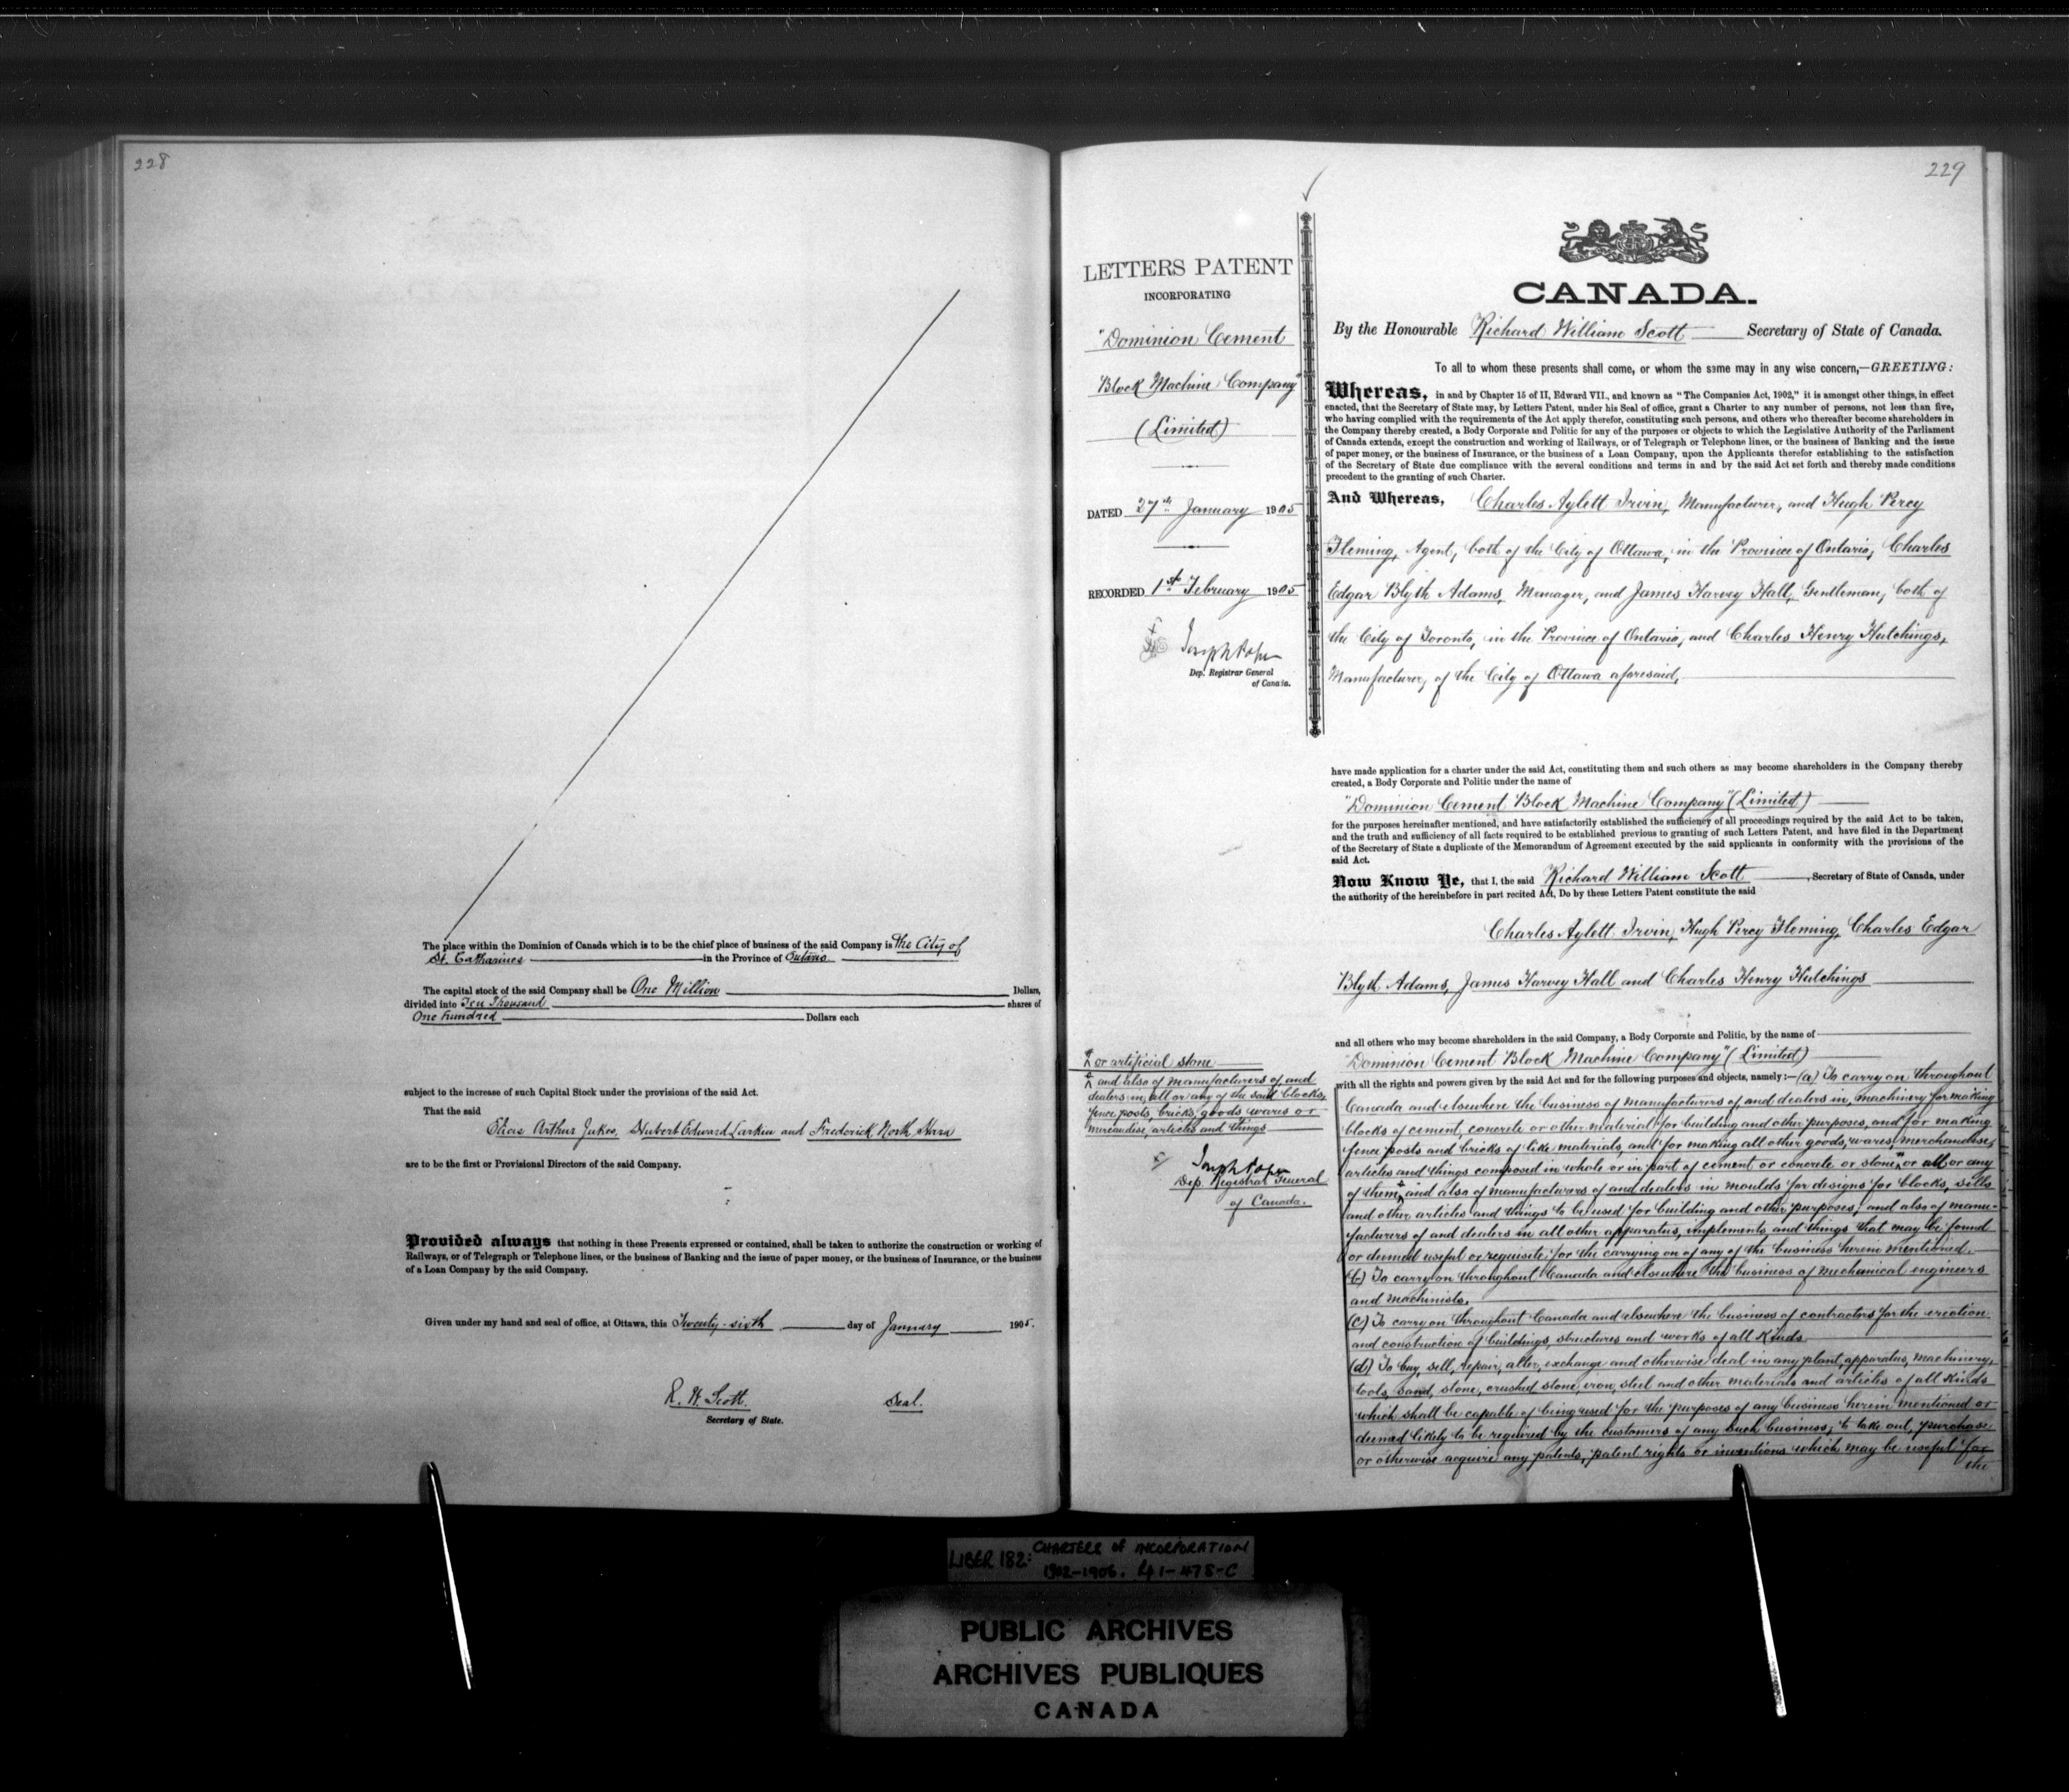 228
The place within the Dominion of Canada which is to be the chief place of business of the said Company is the City of
St. Catharines in the Province of Ontario
The capital stock of the said Company shall be One Million Dollars,
divided into Ten Thousand shares of
One hundred Dollars each
subject to the increase of such Capital Stock under the provisions of the said Act.
That the said
Arthur Jukes, Hubert Edward Larkin and Frederick North
are to be the first or Provisional Directors of the said Company.
Provided always that nothing in these Presents expressed or contained, shall be taken to authorize the construction or working of
Railways, or of Telegraph or Telephone lines, or the business of Banking and the issue of paper money, or the business of Insurance, or the business
of a Loan Company by the said Company.
Given under my hand and seal of office, at Ottawa, this Twenty-sixth day of January 1905.
R. W. Scott. Seal.
Secretary of State.
229
LETTERS PATENT
INCORPORATING
"Dominion Cement
Block Machine Company"
(Limited)
DATED 27th January 1905
RECORDED 1st February 1905
Joseph Pope
Dep. Registrar General
of Canada.
CANADA.
By the Honourable Richard William Scott Secretary of State of Canada.
To all to whom these presents shall come, or whom the same may in any wise concern,—GREETING:
Whereas, in and by Chapter 15 of II, Edward VII., and known as "The Companies Act, 1902," it is amongst other things, in effect
enacted, that the Secretary of State may, by Letters Patent, under his Seal of office, grant a Charter to any number of persons, not less than five,
who having complied with the requirements of the Act apply therefor, constituting such persons, and others who thereafter become shareholders in
the Company thereby created, a Body Corporate and Politic for any of the purposes or objects to which the Legislative Authority of the Parliament
of Canada extends, except the construction and working of Railways, or of Telegraph or Telephone lines, or the business of Banking and the issue
of paper money, or the business of Insurance, or the business of a Loan Company, upon the Applicants therefor establishing to the satisfaction
of the Secretary of State due compliance with the several conditions and terms in and by the said Act set forth and thereby made conditions
precedent to the granting of such Charter.
And Whereas, Charles Aylett Irvin, Manufacturer, and Hugh Percy
Fleming, Agent, both of the City of Ottawa, in the Province of Ontario, Charles
Edgar Blyth Adams, Manager, and James Harvey Hall, Gentleman, both of
the City of Toronto, in the Province of Ontario, and Charles Henry Hutchings,
Manufacturer, of the City of Ottawa aforesaid,
have made application for a charter under the said Act, constituting them and such others as may become shareholders in the Company thereby
created, a Body Corporate and Politic under the name of
"Dominion Cement Block Machine Company" (Limited)
for the purposes hereinafter mentioned, and have satisfactorily established the sufficiency of all proceedings required by the said Act to be taken,
and the truth and sufficiency of all facts required to be established previous to granting of such Letters Patent, and have filed in the Department
of the Secretary of State a duplicate of the Memorandum of Agreement executed by the said applicants in conformity with the provisions of the
said Act.
Now Know Ye, that I, the said Richard William Scott, Secretary of State of Canada, under
the authority of the hereinbefore in part recited Act, Do by these Letters Patent constitute the said
Charles Aylett Irvin, Hugh Percy Fleming, Charles Edgar
Blyth Adams, James Harvey Hall and Charles Henry Hutchings
and all others who may become shareholders in the said Company, a Body Corporate and Politic, by the name of
"Dominion Cement Block Machine Company" (Limited)
with all the rights and powers given by the said Act and for the following purposes and objects, namely:—(a) To carry on throughout
Canada and elsewhere the business of manufacturers of, and dealers in, machinery for making
blocks of cement, concrete or other material for building and other purposes, and for making
fence posts and bricks of like materials, and for making all other goods, wares, merchandise,
articles and things composed in whole or in part of cement or concrete or stone or all or any
of them and also of manufacturers of and dealers in moulds for designs for blocks, sills
and other articles and things to be used for building and other purposes; and also of manu-
facturers of and dealers in all other apparatus, implements and things that may be found
or deemed useful or requisite for the carrying on of any of the business herein mentioned.
(b) To carry on throughout Canada and elsewhere the business of mechanical engineers
and machinists.
(c) To carry on throughout Canada and elsewhere the business of contractors for the erection
and construction of buildings, structures and works of all kinds
(d) To buy, sell, repair, alter, exchange and otherwise deal in any plant, apparatus, machinery,
tools, sand, stone, crushed stone, iron, steel and other materials and articles of all kinds
which shall be capable of being used for the purposes of any business herein mentioned or
deemed likely to be required by the customers of any such business; to take out, purchase
or otherwise acquire any patents, patent rights or inventions which may be useful for
the
or artificial stone
and also of manufacturers of and
dealers in, all or any of the said blocks,
fence posts, bricks, goods wares or
merchandise, articles and things
Joseph Pope
Dep. Registrar General
of Canada.
LIBER 182: CHARTERS OF INCORPORATION
1902-1906. 41-478-C
PUBLIC ARCHIVES
ARCHIVES PUBLIQUES
CANADA